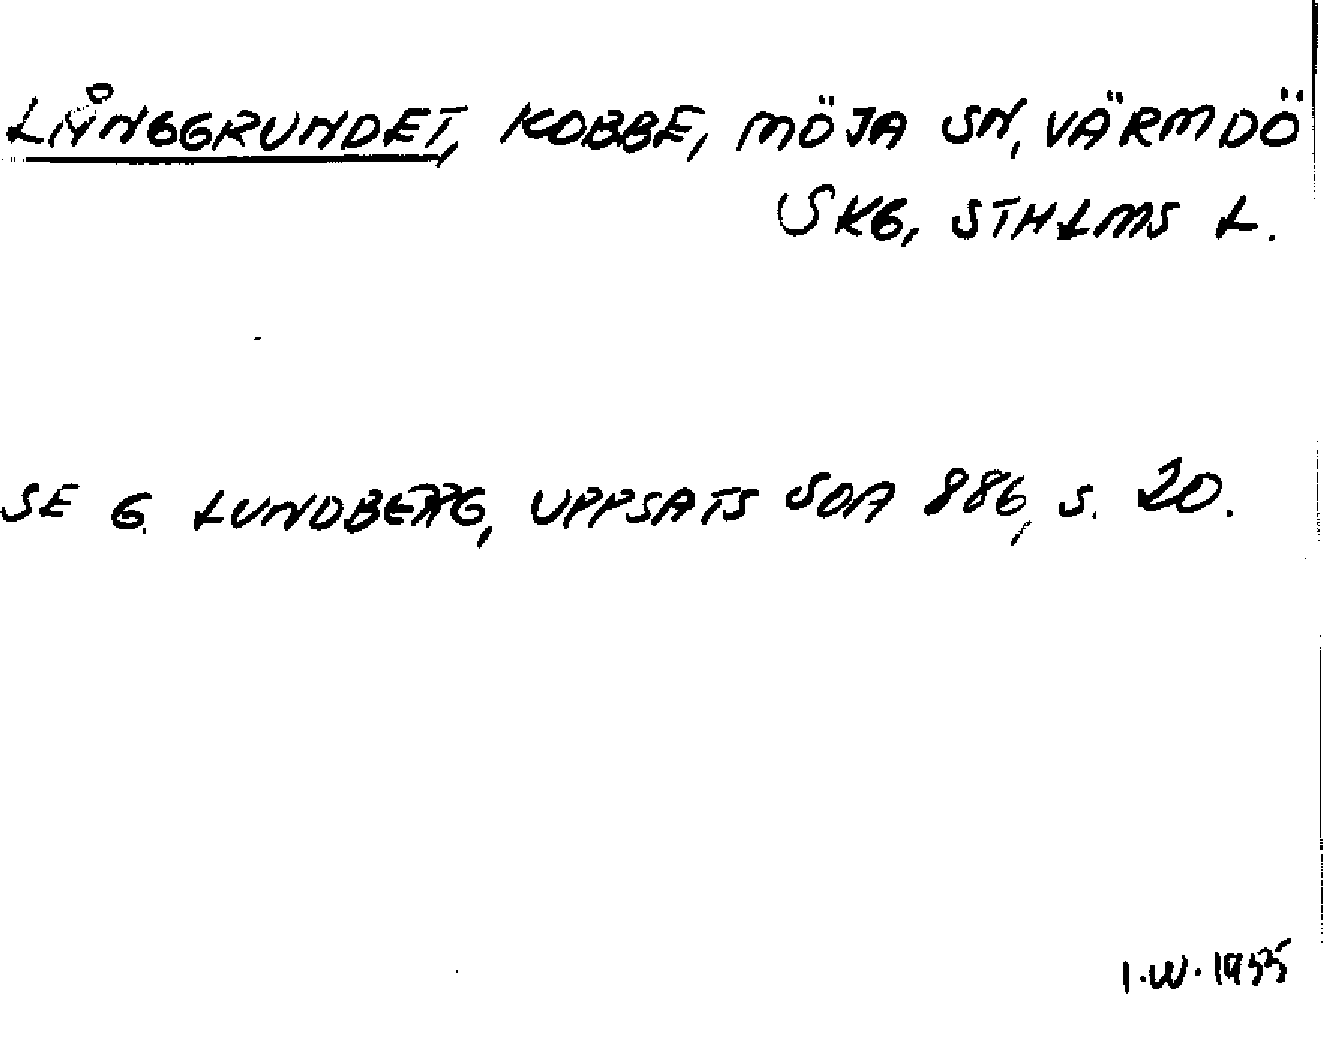 LÅNGGRUNDET, KOBBE, MÖJA SN, VÄRMDÖ
SKG, STHLMS L.
SE G. LUNDBERG, UPPSATS SOA 886, S. 20.
I.W. 1955